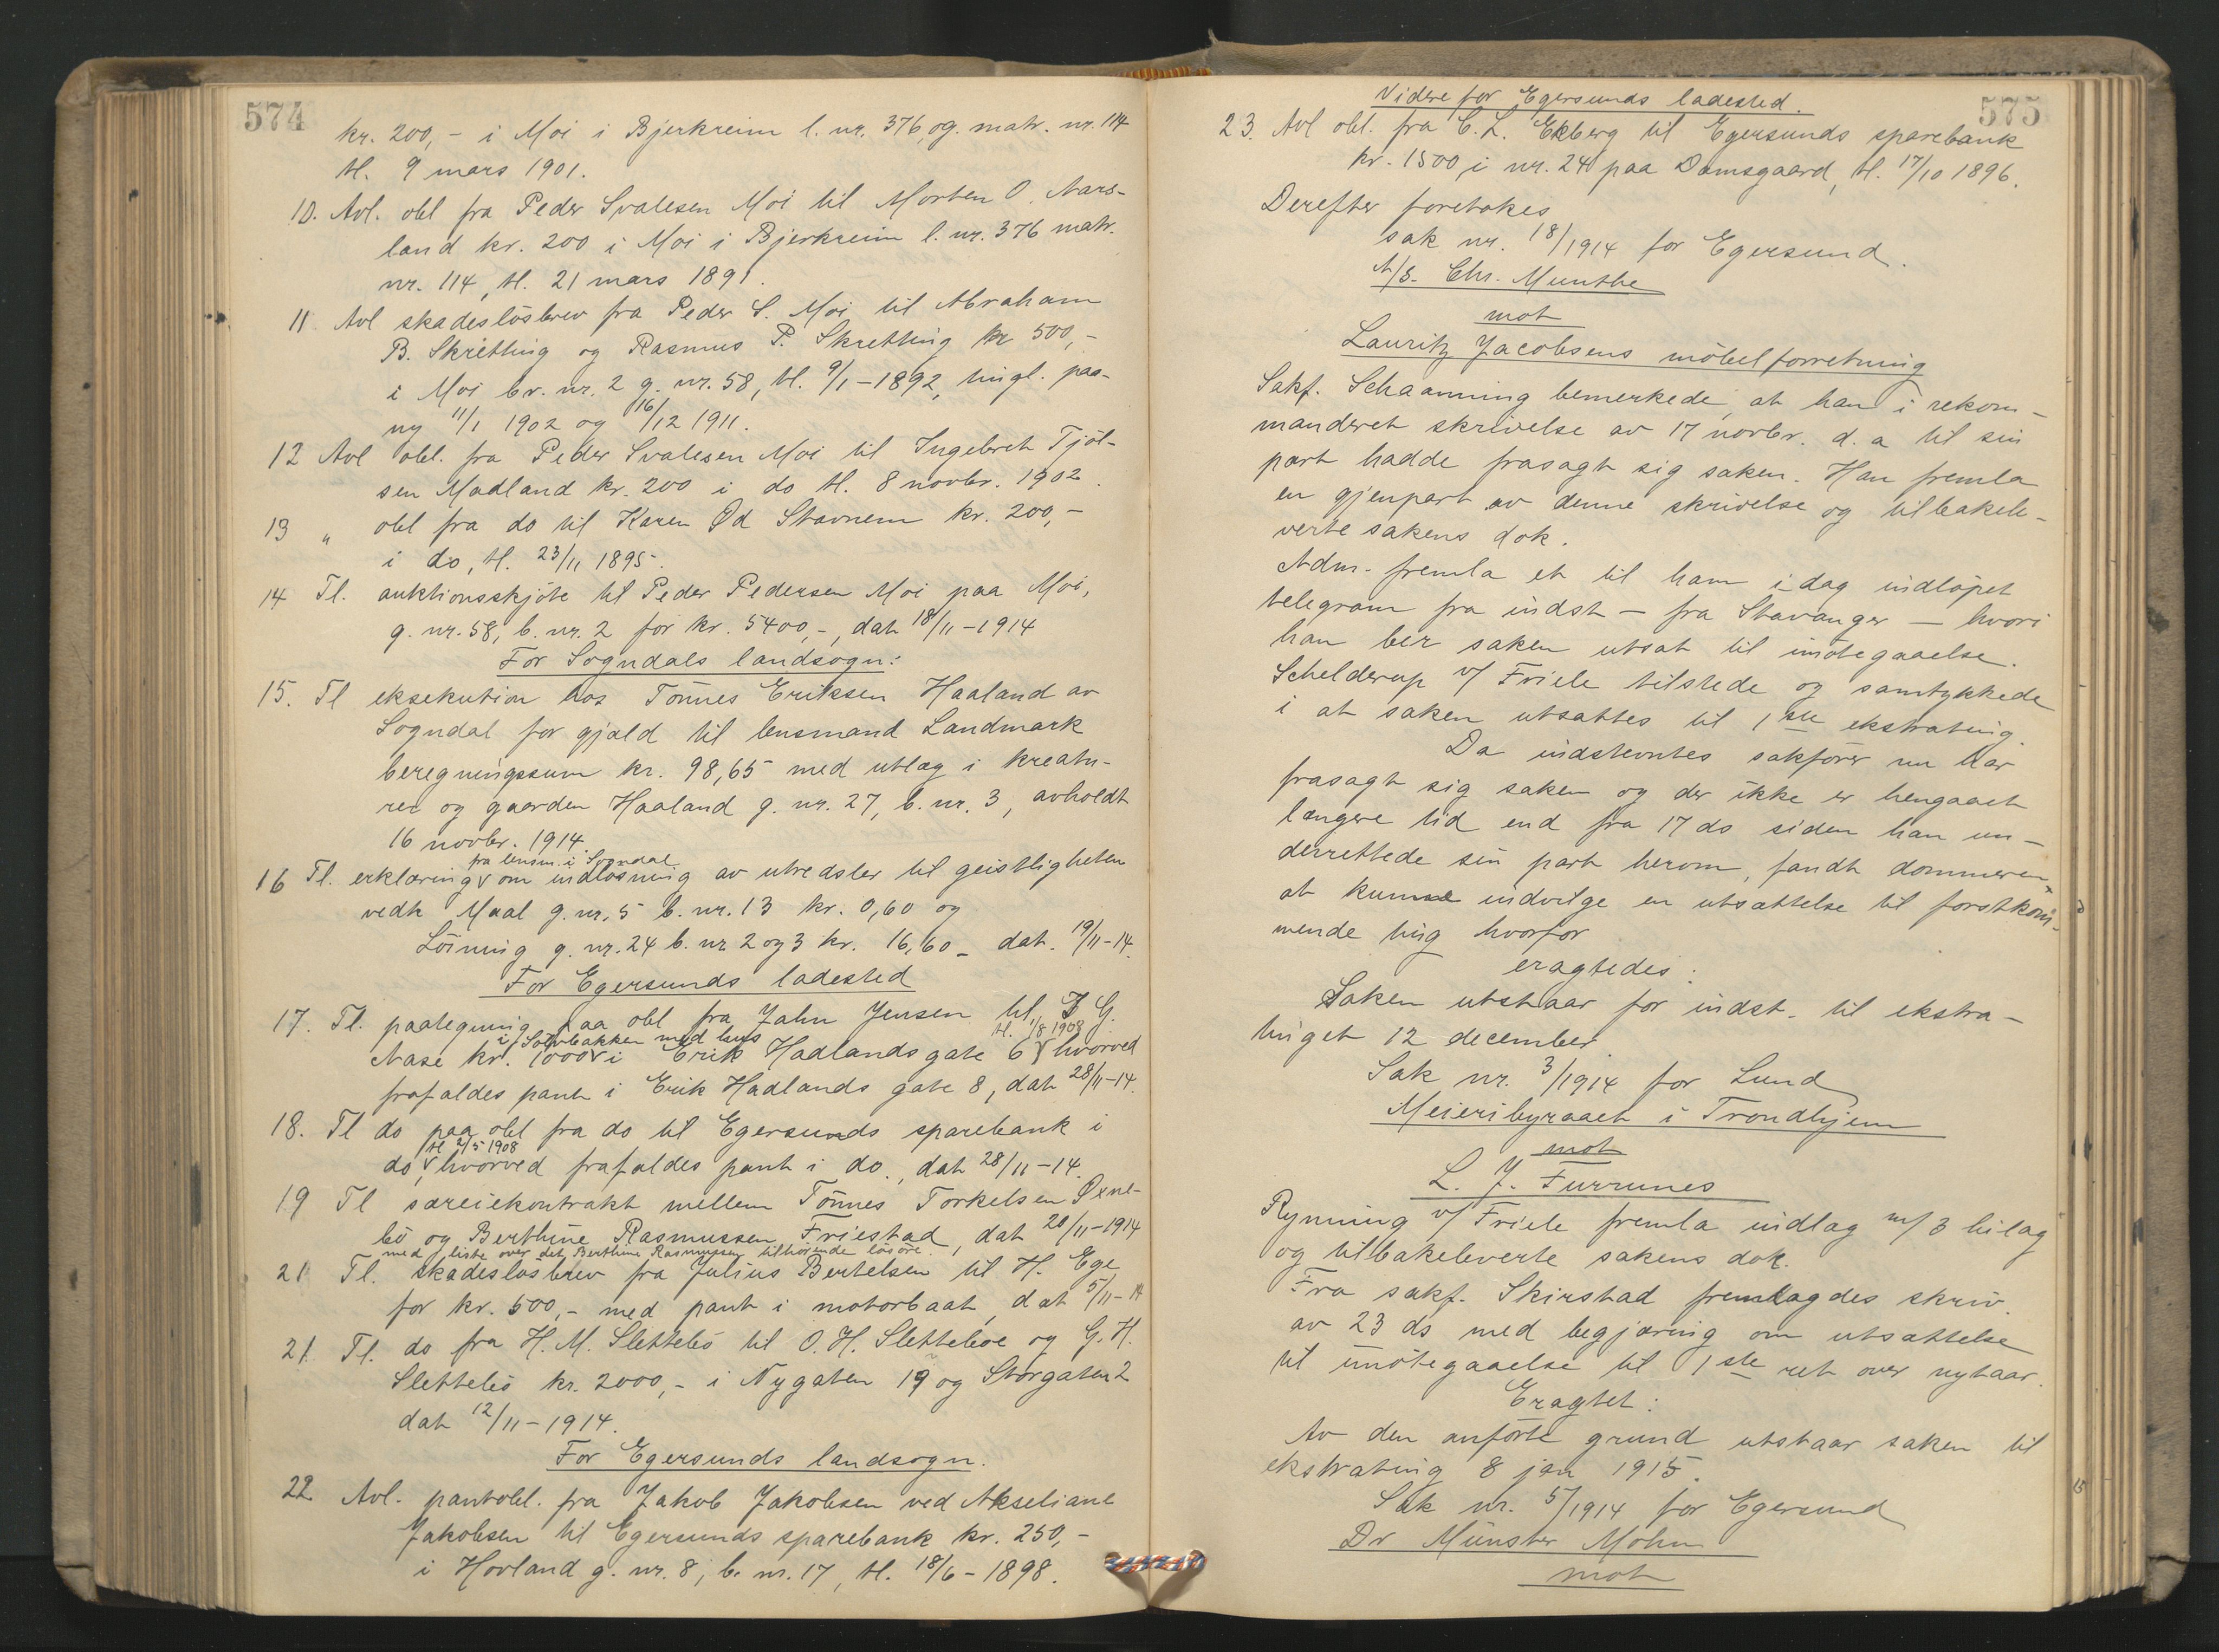 574
kr. 200,- i Moi i Bjerkreim l. nr. 376, og. matr. nr. 114
tl. 9 mars 1901.
10. Avl. obl fra Peder Svalesen Moi til Morten O. Aars-
land kr. 200 i Moi i Bjerkreim l. nr. 376 matr.
nr. 114, tl. 21 mars 1891.
11 Avl skadesløsbrev fra Peder S. Moi til Abraham
B. Skretting og Rasmus P. Skretting kr 500,-
i Moi br. nr. 2 g. nr. 58, tl. 9/1-1892, tingl. paa-
ny 11/1 1902 og 16/12 1911.
12 Avl obl. fra Peder Svalesen Moi til Ingebret Tjøl-
sen Madland kr. 200 i do tl. 8 novbr. 1902.
13 " obl fra do til Karen Od Stavnem kr. 200,-
i do, tl. 23/11 1895.
14 Tl. auktionsskjöte til Peder Pedersen Moi paa Moi,
g. nr. 58, b. nr. 2 for kr. 5400,-, dat 18/11-1914
For Sogndals landsogn:
15. Tl eksekution hos Tönnes Eriksen Haaland av
Sogndal for gjæld til lensmand Landmark
beregningssum kr. 98,65 med utlæg i kreatu-
rer og gaarden Haaland g. nr. 27, b. nr. 3, avholdt
16 novbr. 1914.
fra lensm. i Sogndal
16 Tl. erklæring v om indløsning av utredsler til geistligheten
vedk Maal g. nr. 5 b. nr. 13 kr. 0,60 og
Löining g. nr. 24 b. nr 2 og 3 kr. 16,60 - dat. 19/11-14.
For Egersunds ladested
17. Tl. paategning paa obl fra Jahn Jensen til I G.
i Solbakken med hus tl. 1/8 1908
Aase kr. 1000 v i Erik Hadlands gate 6 v hvorved
frafaldes pant i Erik Hadlands gate 8, dat 28/11-14.
18. Tl do paa obl fra do til Egersunds sparebank i
tl 2/5 1908
do, v hvorved frafaldes pant i do., dat 28/11-14.
19 Tl særeiekontrakt mellem Tönnes Torkelsen Øxne-
bö og Berthine Rasmussen Friestad, dat 20/11-1914
med liste over det Berthine Rasmussen tilhörende lösöre.
21 Tl. skadesløsbrev fra Julius Bertelsen til H. Ege
for kr. 500,- med pant i motorbaat, dat 5/11-14
21. Tl. do fra H. M. Slettebö til O. H. Sletteboe og G. H.
Slettebö kr. 2000,- i Nygaten 19 og Storgaten 2
dat 12/11-1914.
For Egersunds landsogn.
22 Avl. pantobl. fra Jakob Jakobsen ved Akseliane
Jakobsen til Egersunds sparebank kr. 250,-
i Hovland g. nr. 8, b. nr. 17, tl. 18/6-1898.
575
Videre for Egersunds ladested.
23. Avl obl. fra C. L. Ekberg til Egersunds sparebank
kr. 1500, i nr. 240 paa Damsgaard, tl. 17/10 1896.
Derefter foretokes
sak nr. 18/1914 for Egersund.
A/S. Chr. Munthe
mot
Lauritz Jacobsens möbelforretning
Sakf. Schaanning bemerkede, at han i rekom-
manderet skrivelse av 17 novbr. d. a til sin
part hadde frasagt sig saken. Han fremla
en gjenpart av denne skrivelse og tilbakele-
verte sakens dok.
Adm. fremla et til ham i dag indlöpet
telegram fra indst - fra Stavanger - hvori
han ber saken utsat til imötegaaelse.
Schelderup v/ Friele tilstede og samtykkede
i at saken utsattes til 1ste ekstrating.
Da indstevntes sakförer nu har
frasagt sig saken og der ikke er hengaaet
længere tid end fra 17 ds siden han un-
derrettede sin part herom, fandt dommeren
at kunne indvilge en utsættelse til förstkom-
mende ting hvorfor
eragtedes:
Saken utstaar for indst. til ekstra-
tinget 12 december.
Sak nr. 3/1914 for Lund
Meieribyraaet i Trondhjem
mot
L. J. Furrunes
Rynning v/ Friele fremla indlæg m/ 3 bilag
og tilbakeleverte sakens dok.
Fra sakf. Skirstad fremlagdes skriv.
av 23 ds med begjæring om utsættelse
til imötegaaelse til 1ste ret over nytaar.
Eragtet:
Av den anförte grund utstaar saken til
ekstrating 8 jan 1915.
Sak nr. 5/1914 for Egersund
Dr Münster Mohn
mot